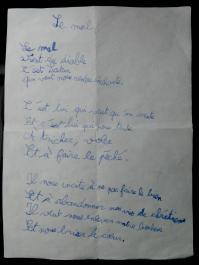 Le mal
Le mal
C'est le diable
C'est Satan
qui veut nous rendre méchants.
C'est lui qui veut qu'on
Et c'est lui qui nous tente
A tricher, voler
Et à faire le péché.
Il nous incite à ne pas faire le bien
Et à abandonner nos vies de chrétiens
Il veut nous enlever notre bonheur
Et nous briser le cœur.